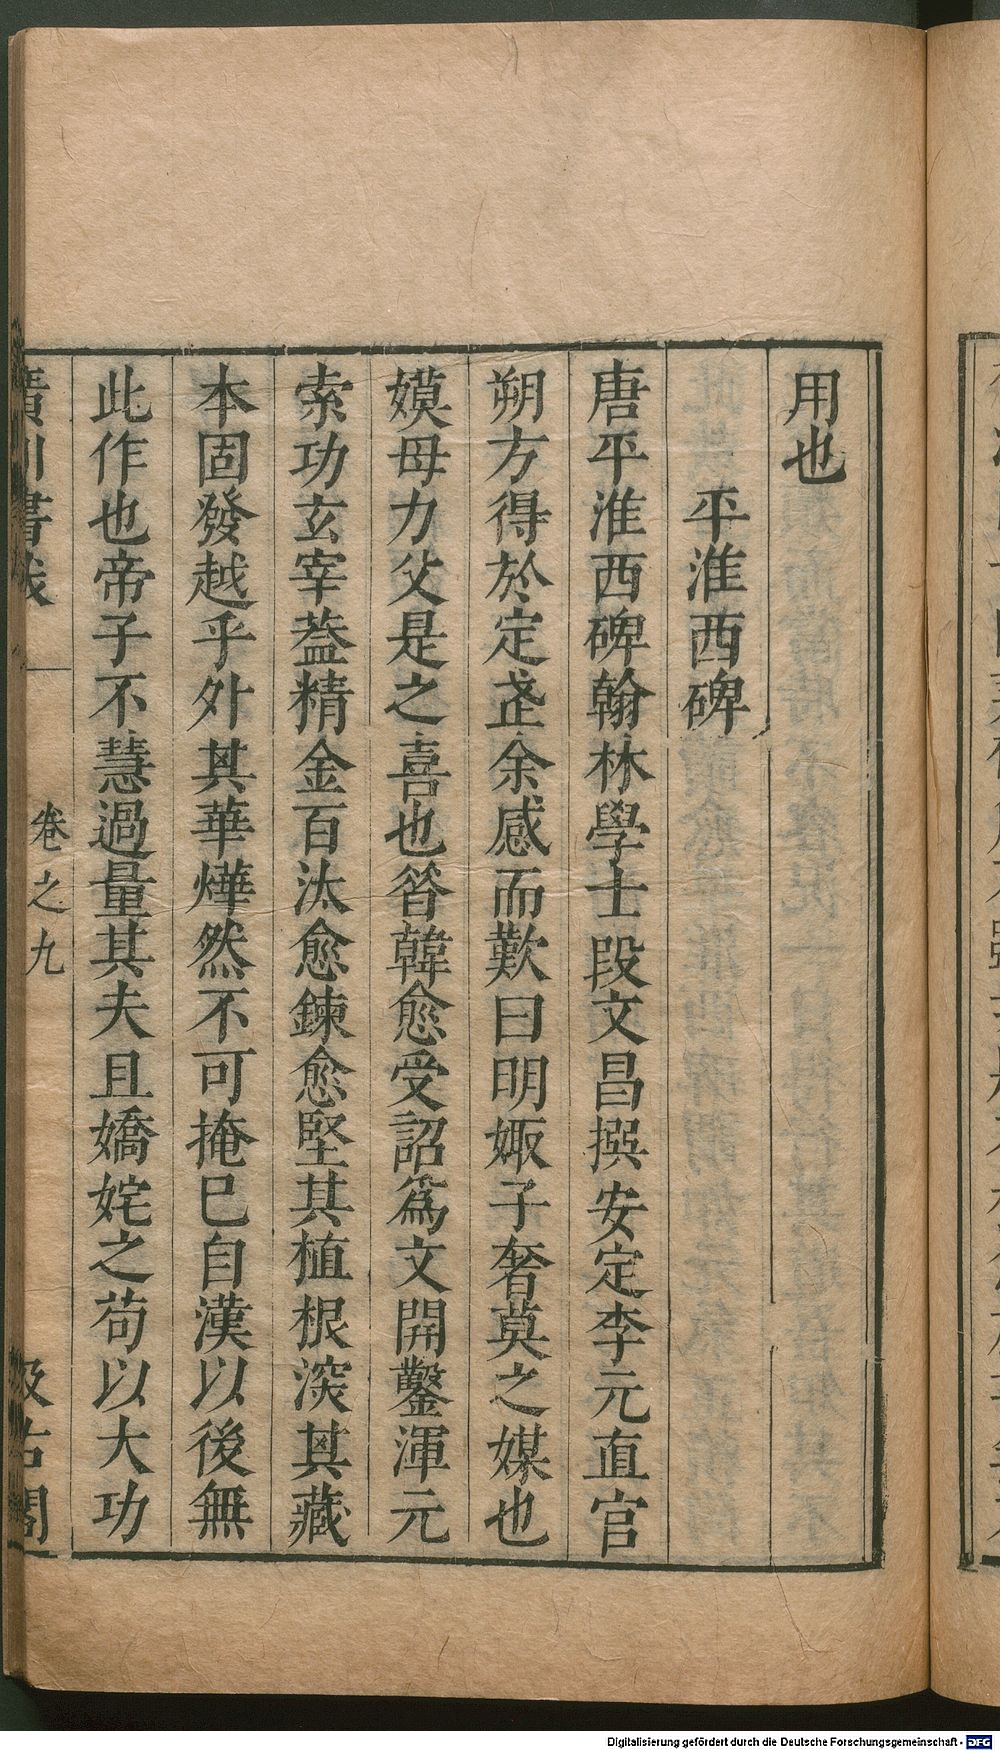 用也
平淮西碑
唐平淮西碑翰林學士段文昌撰安定李元直官
朔方得於定㦮余感而歎曰明娵子奢莫之媒也
嫫母力父是之喜也昝韓愈受詔爲文開鑿渾元
索功玄宰葢精金百汰愈鍊愈堅其植根深其藏
本固發越乎外其華燁然不可掩巳自漢以後無
此作也帝子不慧過量其夫且嬌姹之苟以大功
廣川書跋
卷之九
汲古閣
Digitalisierung gefördert durch die Deutsche Forschungsgemeinschaft - DFG